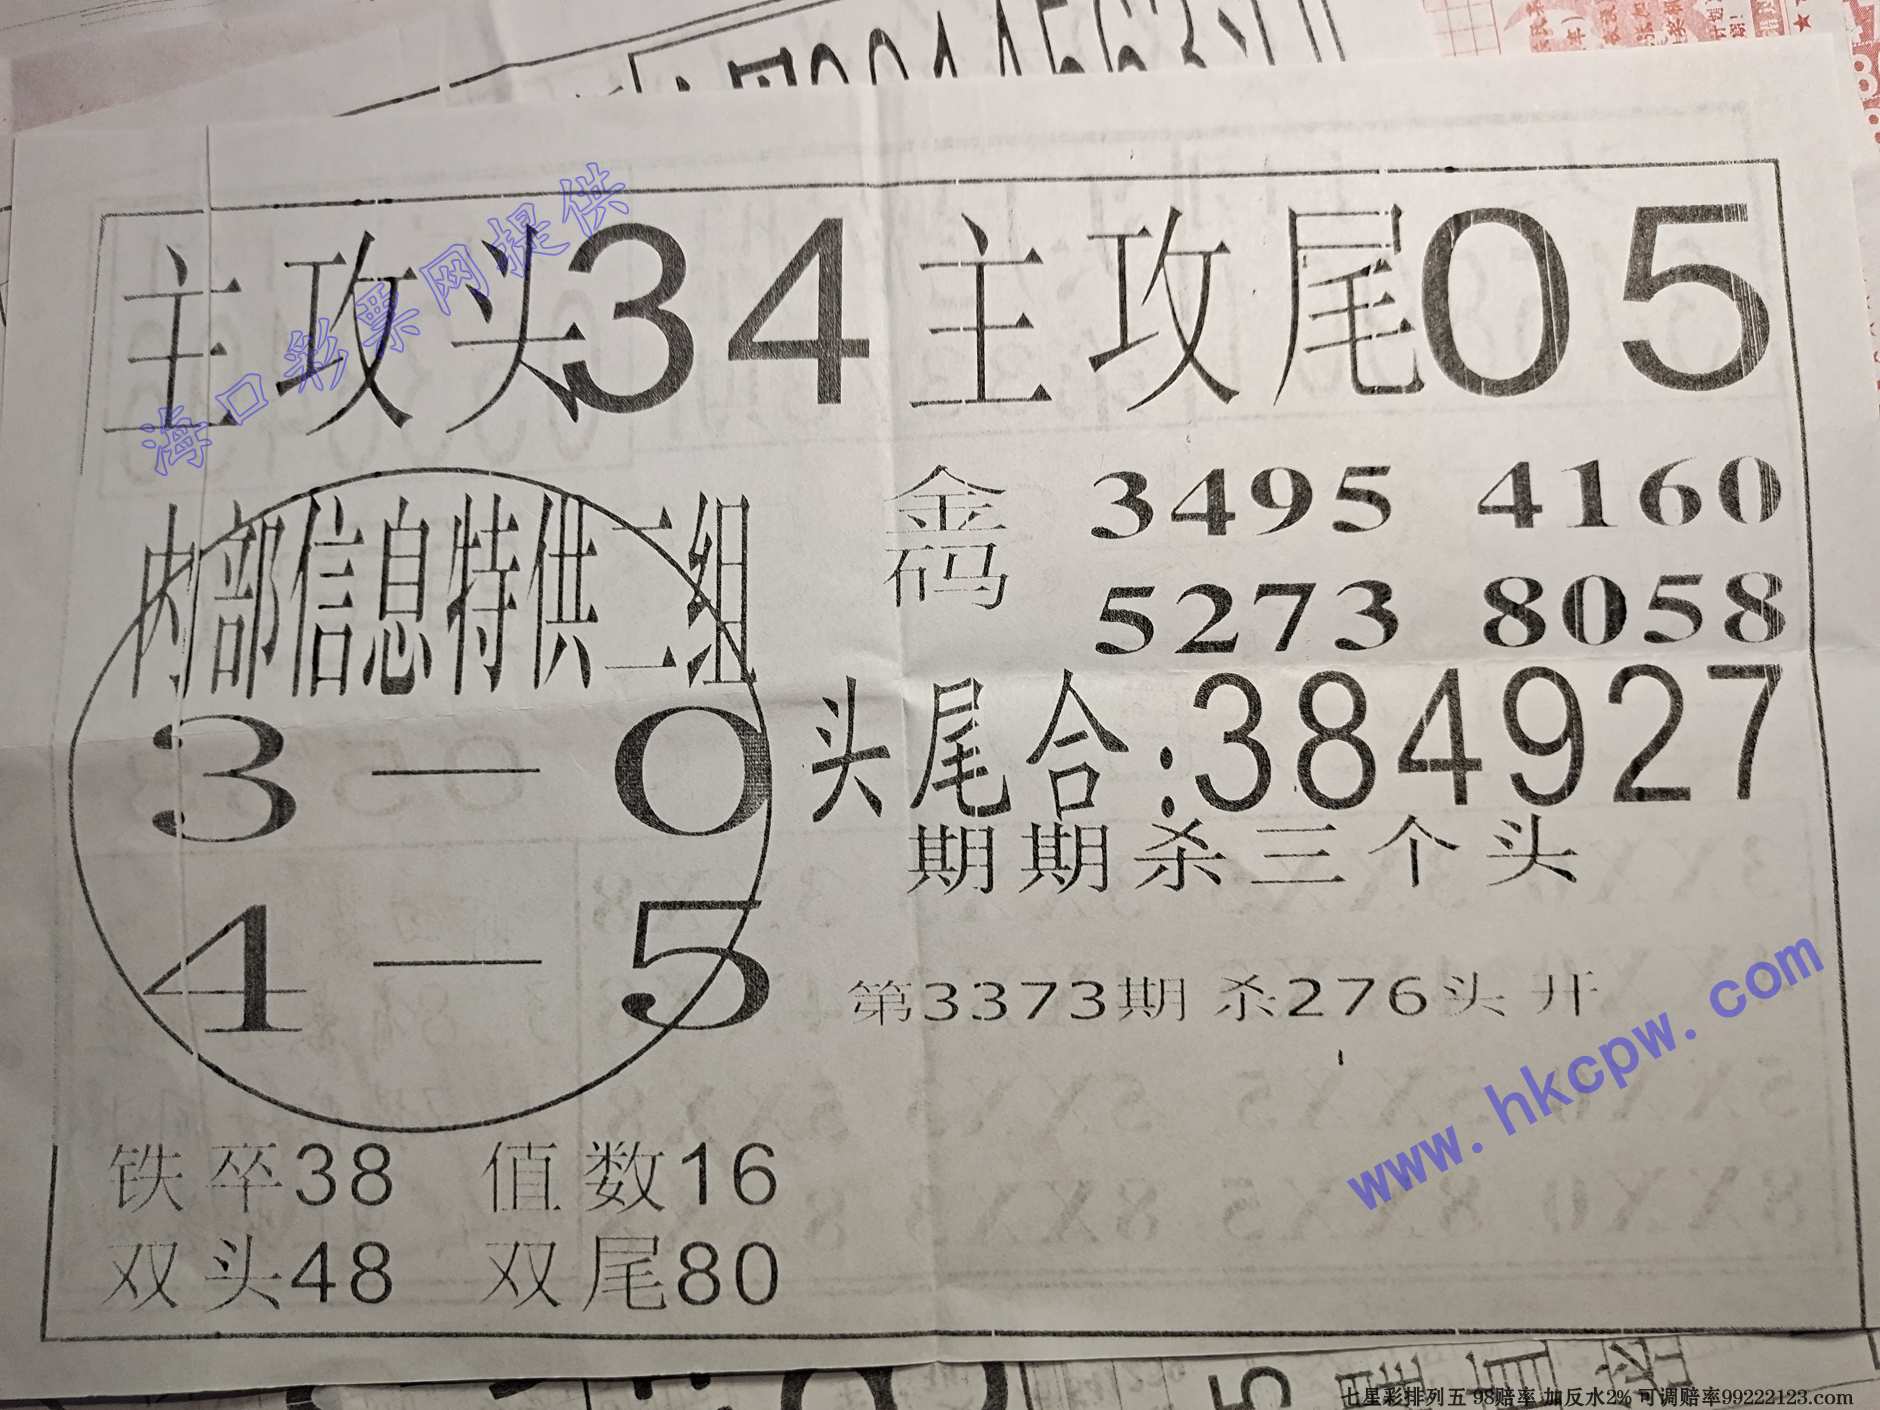 主攻头34 主攻尾05
海口彩票网提供
内部信息特供二组
3—0
4—5
金码 3495 4160
5273 8058
头尾合:384927
期期杀三个头
第3373期 杀276头 开
www.hkcpw.com
铁卒38 值数16
双头48 双尾80
七星彩排列五 98赔率 加反水2% 可调赔率99222123.com